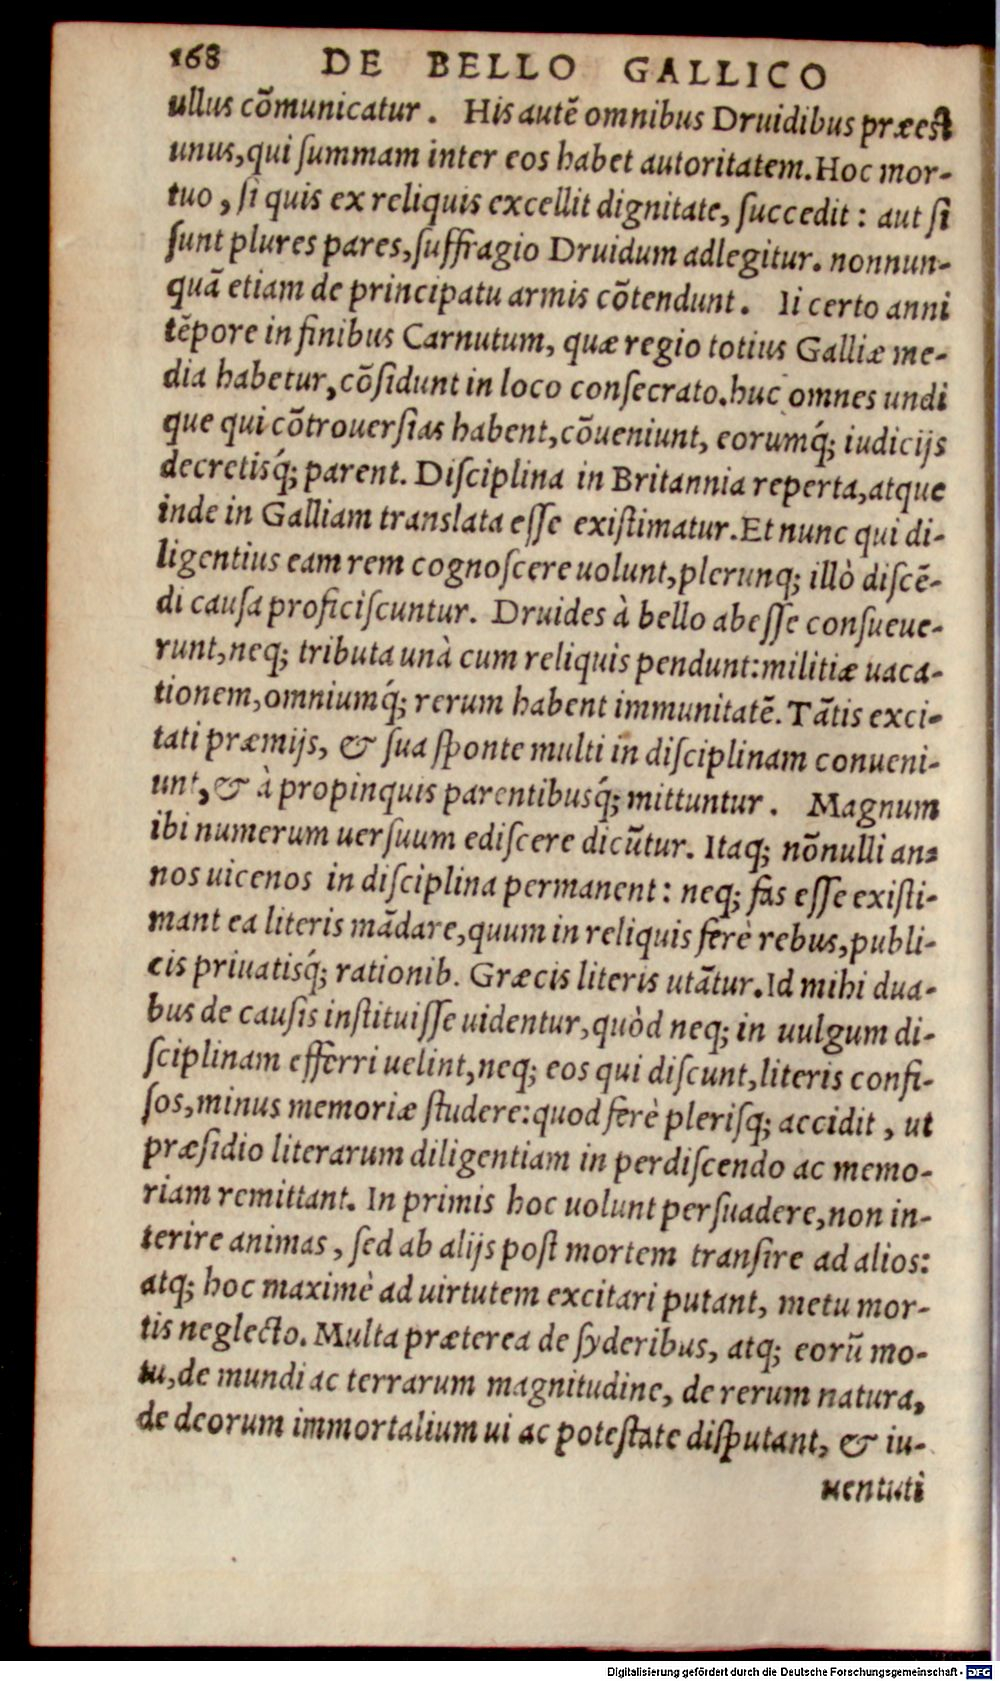 168 DE BELLO GALLICO
ullus cõmunicatur. His autē omnibus Druidibus præest
unus, qui ſummam inter eos habet autoritatem. Hoc mor-
tuo, ſi quis ex reliquis excellit dignitate, ſuccedit: aut ſi
ſunt plures pares, ſuffragio Druidum adlegitur. nonnun-
quã etiam de principatu armis cõtendunt. Ii certo anni
tēpore in finibus Carnutum, quæ regio totius Galliæ me-
dia habetur, cõſidunt in loco conſecrato. huc omnes undi
que qui cõtrouerſias habent, cõueniunt, eorumq́; iudicijs
decretisq́; parent. Diſciplina in Britannia reperta, atque
inde in Galliam translata eſſe exiſtimatur. Et nunc qui di-
ligentius eam rem cognoſcere uolunt, plerunq; illò diſcē-
di cauſa proficiſcuntur. Druides à bello abeſſe conſueue-
runt, neq; tributa unà cum reliquis pendunt: militiæ uaca-
tionem, omniumq́; rerum habent immunitatē. Tãtis exci-
tati præmijs, & ſua ſponte multi in diſciplinam conueni-
unt, & à propinquis parentibusq́; mittuntur. Magnum
ibi numerum uerſuum ediſcere dicũtur. Itaq; nõnulli an-
nos uicenos in diſciplina permanent: neq; fas eſſe exiſti-
mant ea literis mãdare, quum in reliquis ferè rebus, publi-
cis priuatisq́; rationib. Græcis literis utãtur. Id mihi dua-
bus de cauſis inſtituiſſe uidentur, quòd neq; in uulgum di-
ſciplinam efferri uelint, neq; eos qui diſcunt, literis confi-
ſos, minus memoriæ ſtudere: quod ferè pleriſq; accidit, ut
præſidio literarum diligentiam in perdiſcendo ac memo-
riam remittant. In primis hoc uolunt perſuadere, non in-
terire animas, ſed ab alijs poſt mortem tranſire ad alios:
atq; hoc maximè ad uirtutem excitari putant, metu mor-
tis neglecto. Multa præterea de ſyderibus, atq; eorũ mo-
tu, de mundi ac terrarum magnitudine, de rerum natura,
de deorum immortalium ui ac poteſtate diſputant, & iu-
uentuti
Digitalisierung gefördert durch die Deutsche Forschungsgemeinschaft - DFG